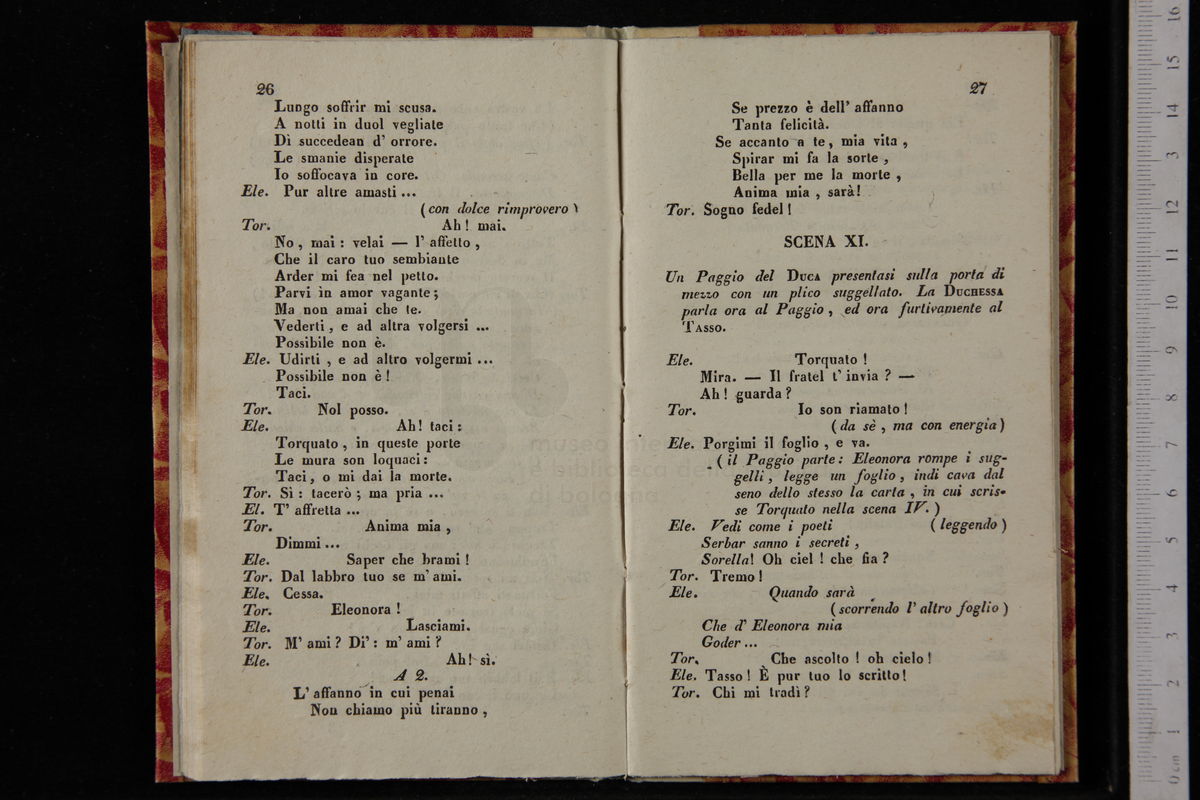 26
Lungo soffrir mi scusa.
A notti in duol vegliate
Dì succedean d' orrore.
Le smanie disperate
Io soffocava in core.
Ele. Pur altre amasti ...
(con dolce rimprovero)
Tor. Ah! mai.
No, mai: velai — l' affetto,
Che il caro tuo sembiante
Arder mi fea nel petto.
Parvi in amor vagante;
Ma non amai che te.
Vederti, e ad altra volgersi ...
Possibile non è.
Ele. Udirti, e ad altro volgermi ...
Possibile non è!
Taci.
Tor. Nol posso.
Ele. Ah! taci:
Torquato, in queste porte
Le mura son loquaci:
Taci, o mi dai la morte.
Tor. Sì: tacerò; ma pria ...
El. T' affretta ...
Tor. Anima mia,
Dimmi ...
Ele. Saper che brami!
Tor. Dal labbro tuo se m' ami.
Ele. Cessa.
Tor. Eleonora!
Ele. Lasciami.
Tor. M' ami? Di': m' ami?
Ele. Ah! sì.
A 2.
L' affanno in cui penai
Non chiamo più tiranno,
27
Se prezzo è dell' affanno
Tanta felicità.
Se accanto a te, mia vita,
Spirar mi fa la sorte,
Bella per me la morte,
Anima mia, sarà!
Tor. Sogno fedel!
SCENA XI.
Un Paggio del DUCA presentasi sulla porta di
mezzo con un plico suggellato. La DUCHESSA
parla ora al Paggio, ed ora furtivamente al
TASSO.
Ele. Torquato!
Mira. — Il fratel t' invia? —
Ah! guarda?
Tor. Io son riamato!
(da sè, ma con energia)
Ele. Porgimi il foglio, e va.
(il Paggio parte: Eleonora rompe i sug-
gelli, legge un foglio, indi cava dal
seno dello stesso la carta, in cui scris-
se Torquato nella scena IV.)
Ele. Vedi come i poeti (leggendo)
Serbar sanno i secreti,
Sorella! Oh ciel! che fia?
Tor. Tremo!
Ele. Quando sarà
(scorrendo l' altro foglio)
Che d' Eleonora mia
Goder ...
Tor. Che ascolto! oh cielo!
Ele. Tasso! È pur tuo lo scritto!
Tor. Chi mi tradì?